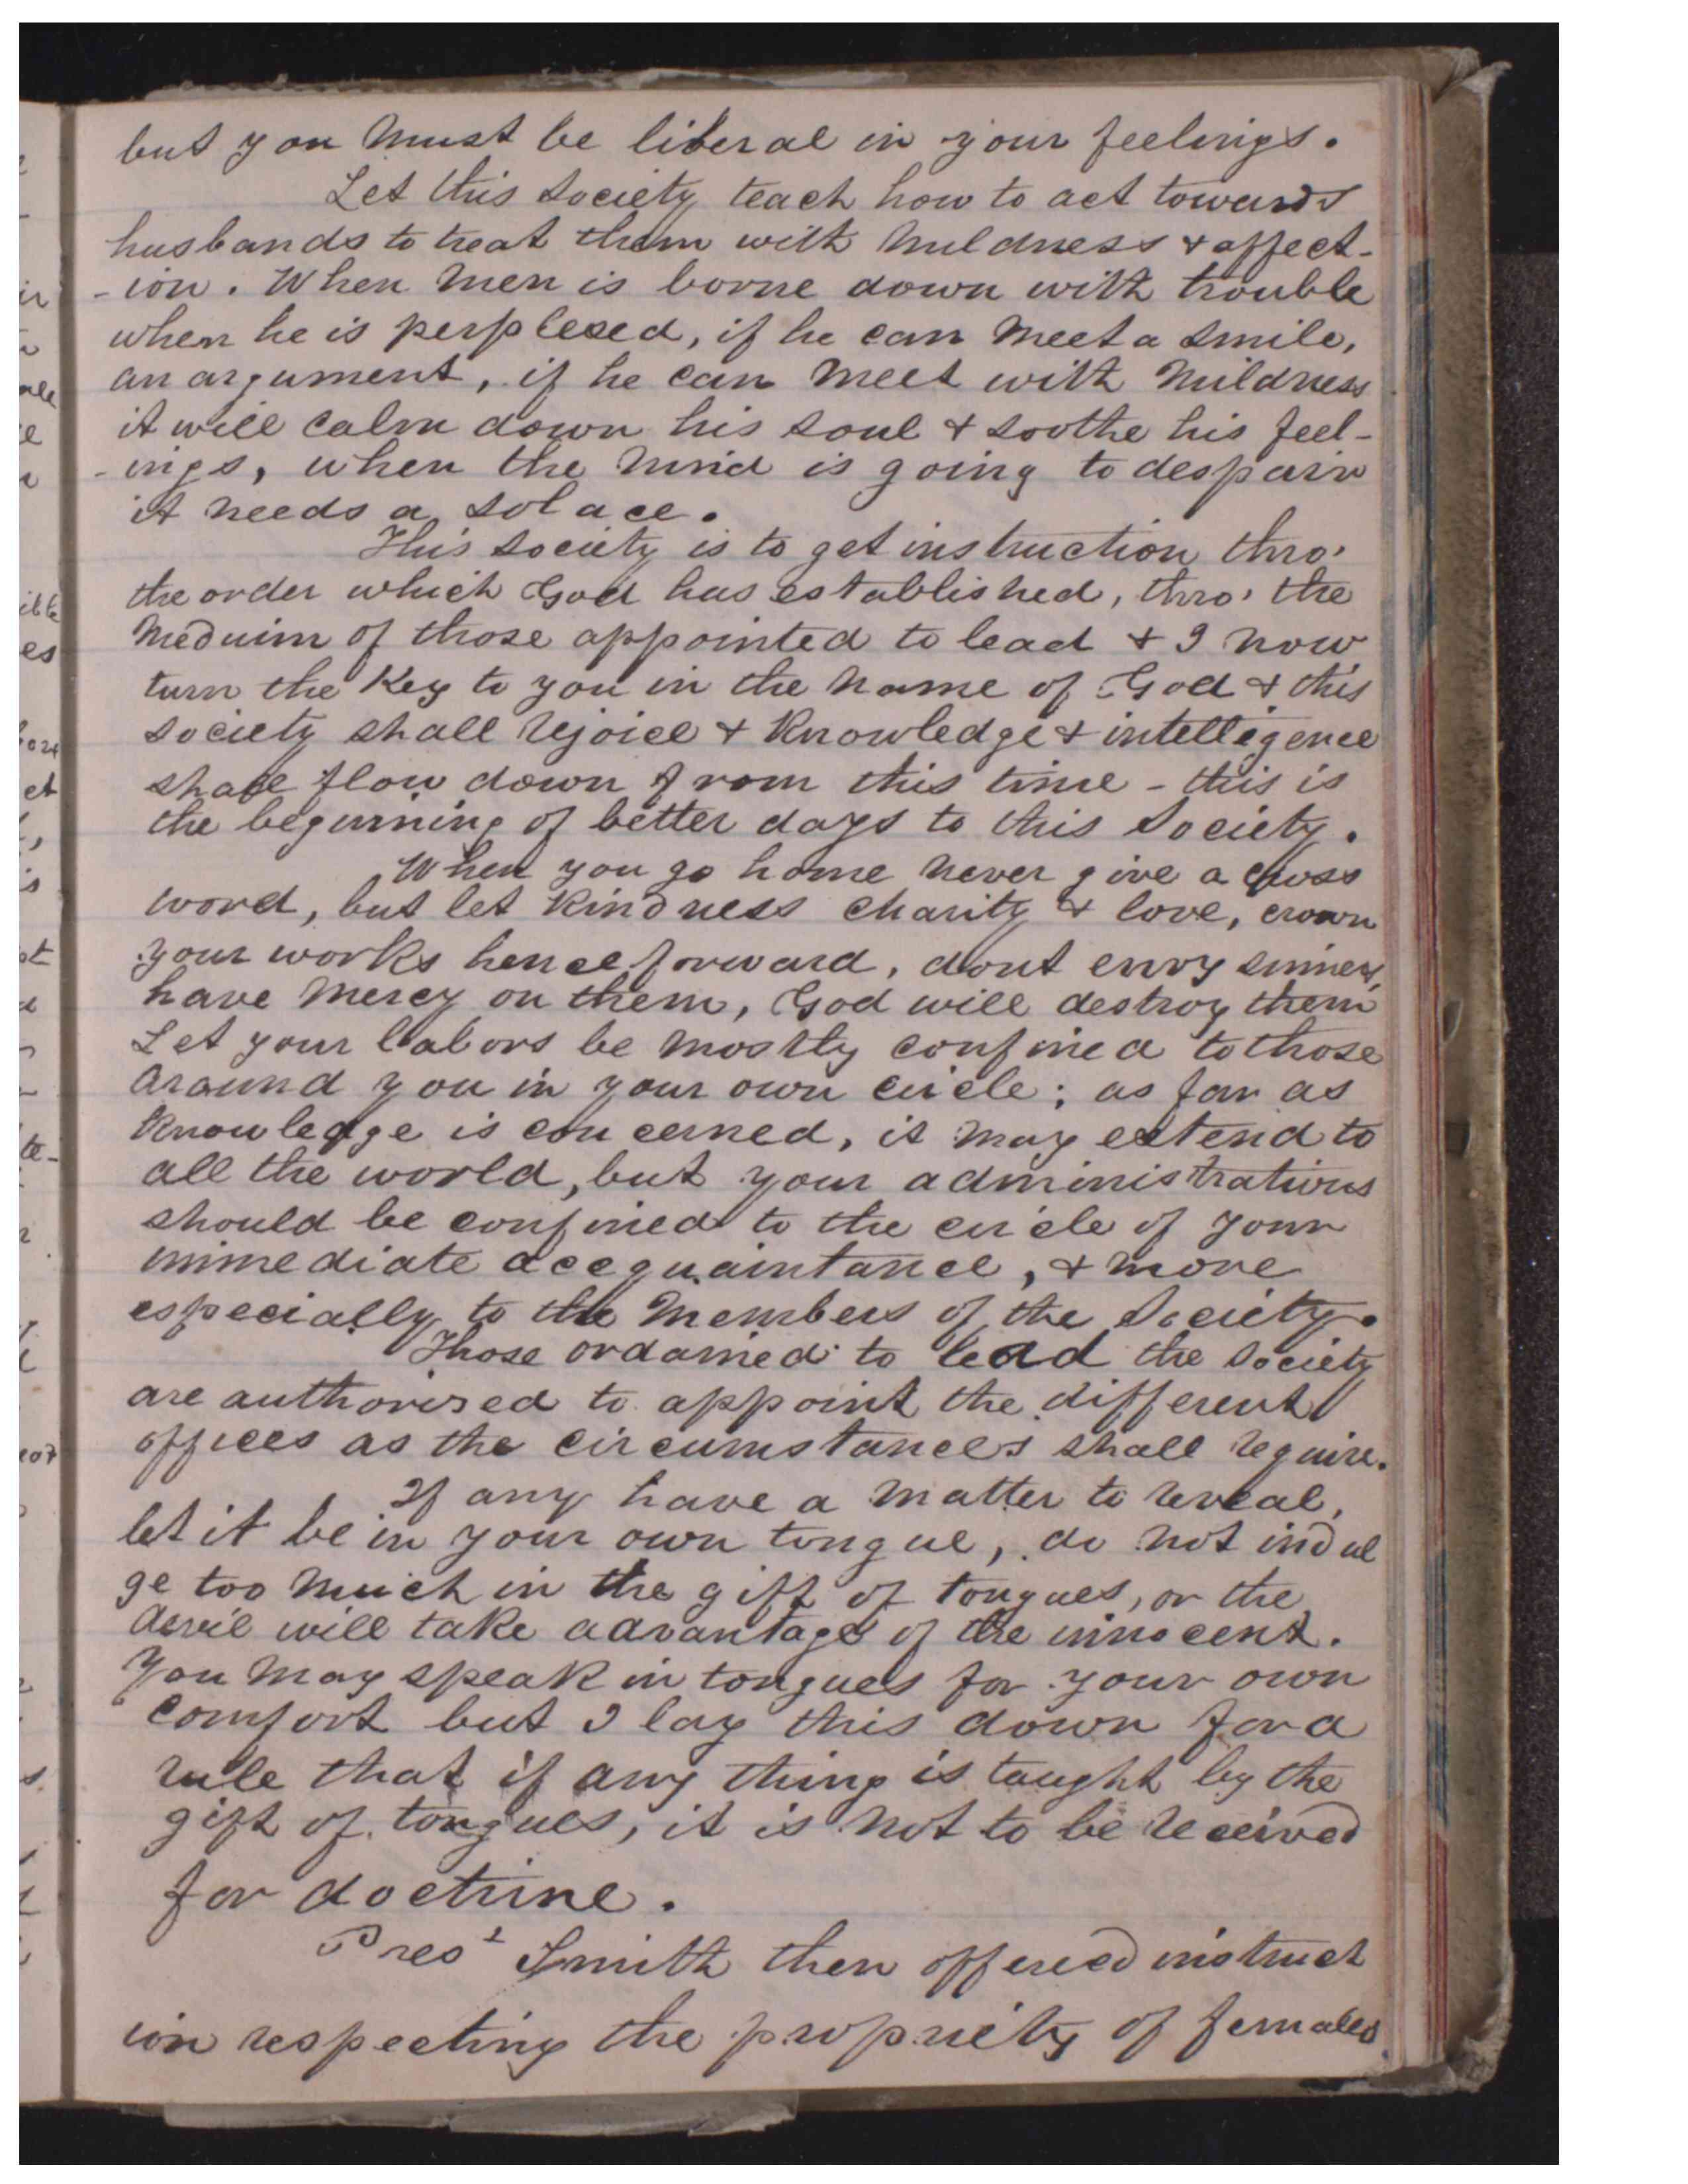 but you must be liberal in your feelings.
Let this Society teach how to act towards
husbands to treat them with mildness & affect-
-ion. When men is borne down with trouble
when he is perplexed, if he can meet a smile,
an argument, if he can meet with mildness
it will calm down his soul & soothe his feel-
-ings, when the mind is going to despair
it needs a solace.
This Society is to get instruction thro'
the order which God has established, thro' the
meduim of those appointed to lead & I now
turn the key to you in the name of God & this
society shall rejoice & knowledge & intelligence
shall flow down from this time - this is
the beginning of better days to this Society.
When you go home never give a cross
word, but let kindness charity & love, crown
your works henceforward, dont envy sinners,
have mercy on them, God will destroy them
Let your labors be mostly confined to those
around you in your own circle; as far as
knowledge is concerned, it may extend to
all the world, but your administrations
should be confined to the circle of your
immediate accquaintance, & more
especially to the members of the Society.
Those ordained to lead the Society
are authorised to appoint the different
offices as the circumstances shall require.
If any have a matter to reveal,
let it be in your own tongue, do not indul
ge too much in the gift of tongues, or the
devil will take advantage of the innocent.
You may speak in tongues for your own
comfort but I lay this down for a
rule that if any thing is taught by the
gift of tongues, it is not to be received
for doctrine.
Prest Smith then offered instruct
ion respecting the propriety of females